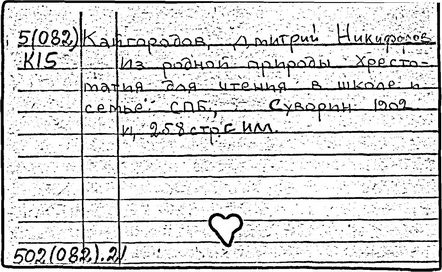 5(082) Кайгородов, Дмитрий Никифоров
К15 Из родной природы Хресто-
матия для чтения в школе и
семье СПБ, Суворин 1902
258 стр с илл.
502(082).2